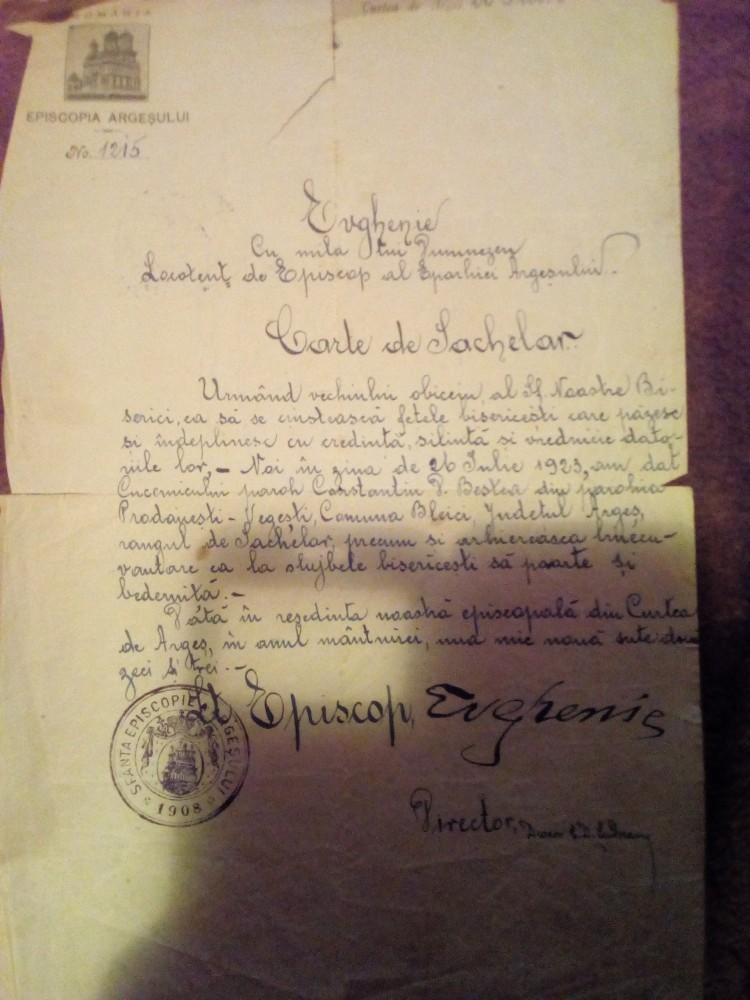 ROMÂNIA
Curtea de
EPISCOPIA ARGEȘULUI
No. 1215
Evghenie
Cu mila lui Dumnezeu
Locotent de Episcop al Eparhiei Argeșului.
Carte de Sachelar.
Urmând vechiului obiceiu, al Sf. Noastre Bi-
serici, ca să se cinstească fețele bisericești care păzesc
și îndeplinesc cu credință, silință și vrednicie dato-
riile lor, – Noi în ziua de 26 Iulie 1923, am dat
Cucernicului paroh Constantin P. din parohia
Comuna Județul Argeș,
rangul de Sachelar, precum și arhiereasca binecu-
vântare ca la slujbele bisericești să poarte și
bederniță. –
Dată în reședința noastră episcopală din Curtea
de Argeș, în anul mântuirei, una mie nouă sute două
zeci și trei. –
Episcop, Evghenie
SFÂNTA EPISCOPIE A ARGEȘULUI
* 1908 *
Director,